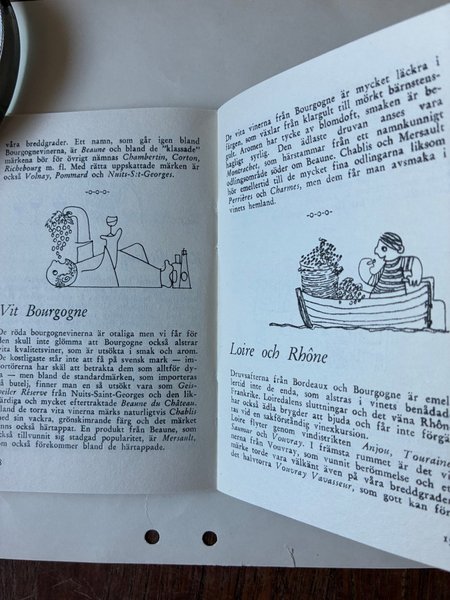 våra breddgrader. Ett namn, som går igen bland
Bourgognevinerna, är Beaune och bland de "klassade"
märkena bör för övrigt nämnas Chambertin, Corton,
Richebourg m. fl. Med rätta uppskattade märken är
också Volnay, Pommard och Nuits-S:t-Georges.
Vit Bourgogne
De röda bourgognevinerna är otaliga men vi får för
den skull inte glömma att Bourgogne också alstrar
vita kvalitetsviner, som är utsökta i smak och arom.
De kostligaste står inte att få på svensk mark — im-
portörerna har att betrakta dem som alltför dyrba-
— men bland de standardmärken, som importeras
på butelj, finner man en så utsökt vara som Geis-
weiler Réserve från Nuits-Saint-Georges och den lik-
och mycket eftertraktade Beaune du Château.
Bland de torra vita vinerna märks naturligtvis Chablis
med sin vackra, grönskimrande färg och det märket
finns också härtappat. En produkt från Beaune, som
också tillvunnit sig stadgad popularitet, är Mersault,
som också förekommer bland de härtappade.
8
De vita vinerna från Bourgogne är mycket läckra i
färgen, som växlar från klargult till mörkt bärnstens-
gult. Aromen har tycke av blomdoft, smaken är be-
hagligt syrlig. Den ädlaste druvan anses vara
Montrachet, som härstammar från ett namnkunnigt
odlingsområde söder om Beaune. Chablis och Mersault
hör emellertid till de mycket fina odlingarna liksom
Perrières och Charmes, men dem får man avsmaka i
vinets hemland.
Loire och Rhône
Druvsafterna från Bordeaux och Bourgogne är emel-
lertid inte de enda, som alstras i vinets benådade
Frankrike. Loiredalens sluttningar och det väna Rhône
har också ädla brygder att bjuda och får inte förgä-
tas vid en sakförståndig vinexkursion.
Loire flyter genom vindistrikten Anjou, Touraine,
Saumur och Vouvray. I främsta rummet är det vi-
nerna från Vouvray, som vunnit berömmelse och ett
märke torde vara välkänt även på våra breddgrader,
det halvtorra Vouvray Vavasseur, som gott kan för-